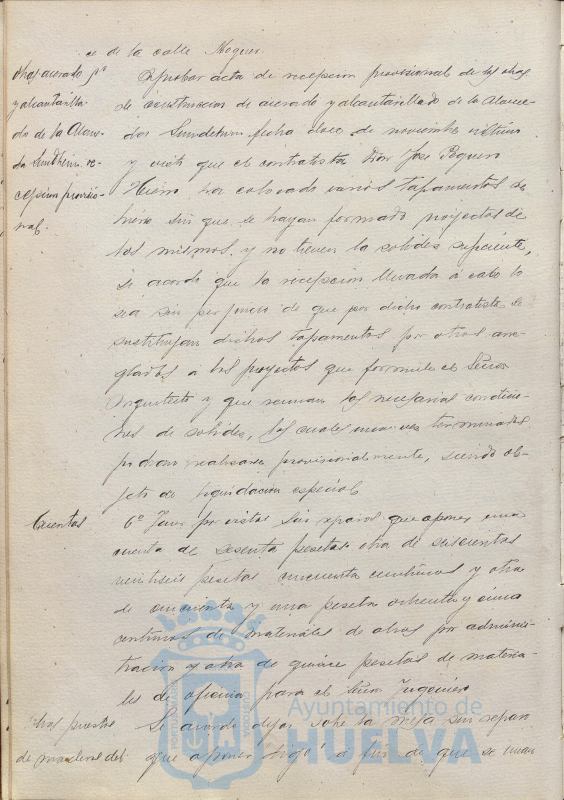 de la calle Moguer.
Obras acerado pª
y alcantarilla
do de la Alame
da Sundheim re
cepcion provisio-
nal.
Aprobar acta de recepcion provisional de las obras
de construccion de acerado y alcantarillado de la Alame-
da Sundheim fecha doce de noviembre ultimo
y visto que el contratista Don Jose Peguero
Hierro ha colocado varios tapamentos de
hierro sin que se hayan formado proyectos de
los mismos y no tienen la solides suficiente,
se acordó que la recepcion llevada á cabo lo
sea sin perjuicio de que por dicho contratista se
sustituyan dichos tapamentos por otros arre-
glados á los proyectos que formule el Señor
Arquitecto y que reunan las necesarias condicio-
nes de solides, las cuales una vez terminadas
podran realisarse provisionalmente, siendo ob-
jeto de liquidacion especial.
Cuentas
6º por vistas sin reparos que oponer una
cuenta de sesenta pesetas otra de seiscientas
veintiseis pesetas cincuenta centimos y otra
de cincuenta y una peseta ochenta y cinco
centimos de materiales de obras por adminis-
tracion y otra de quince pesetas de materia-
les de oficina para el Señor Ingeniero
Obras puestos
de madera del
Se acordó dejar sobre la mesa sin reparo
que oponer á fin de que se unan
Ayuntamiento de
HUELVA